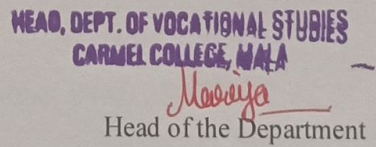 HEAD, DEPT. OF VOCATIONAL STUDIES
CARMEL COLLEGE, MALA
Head of the Department